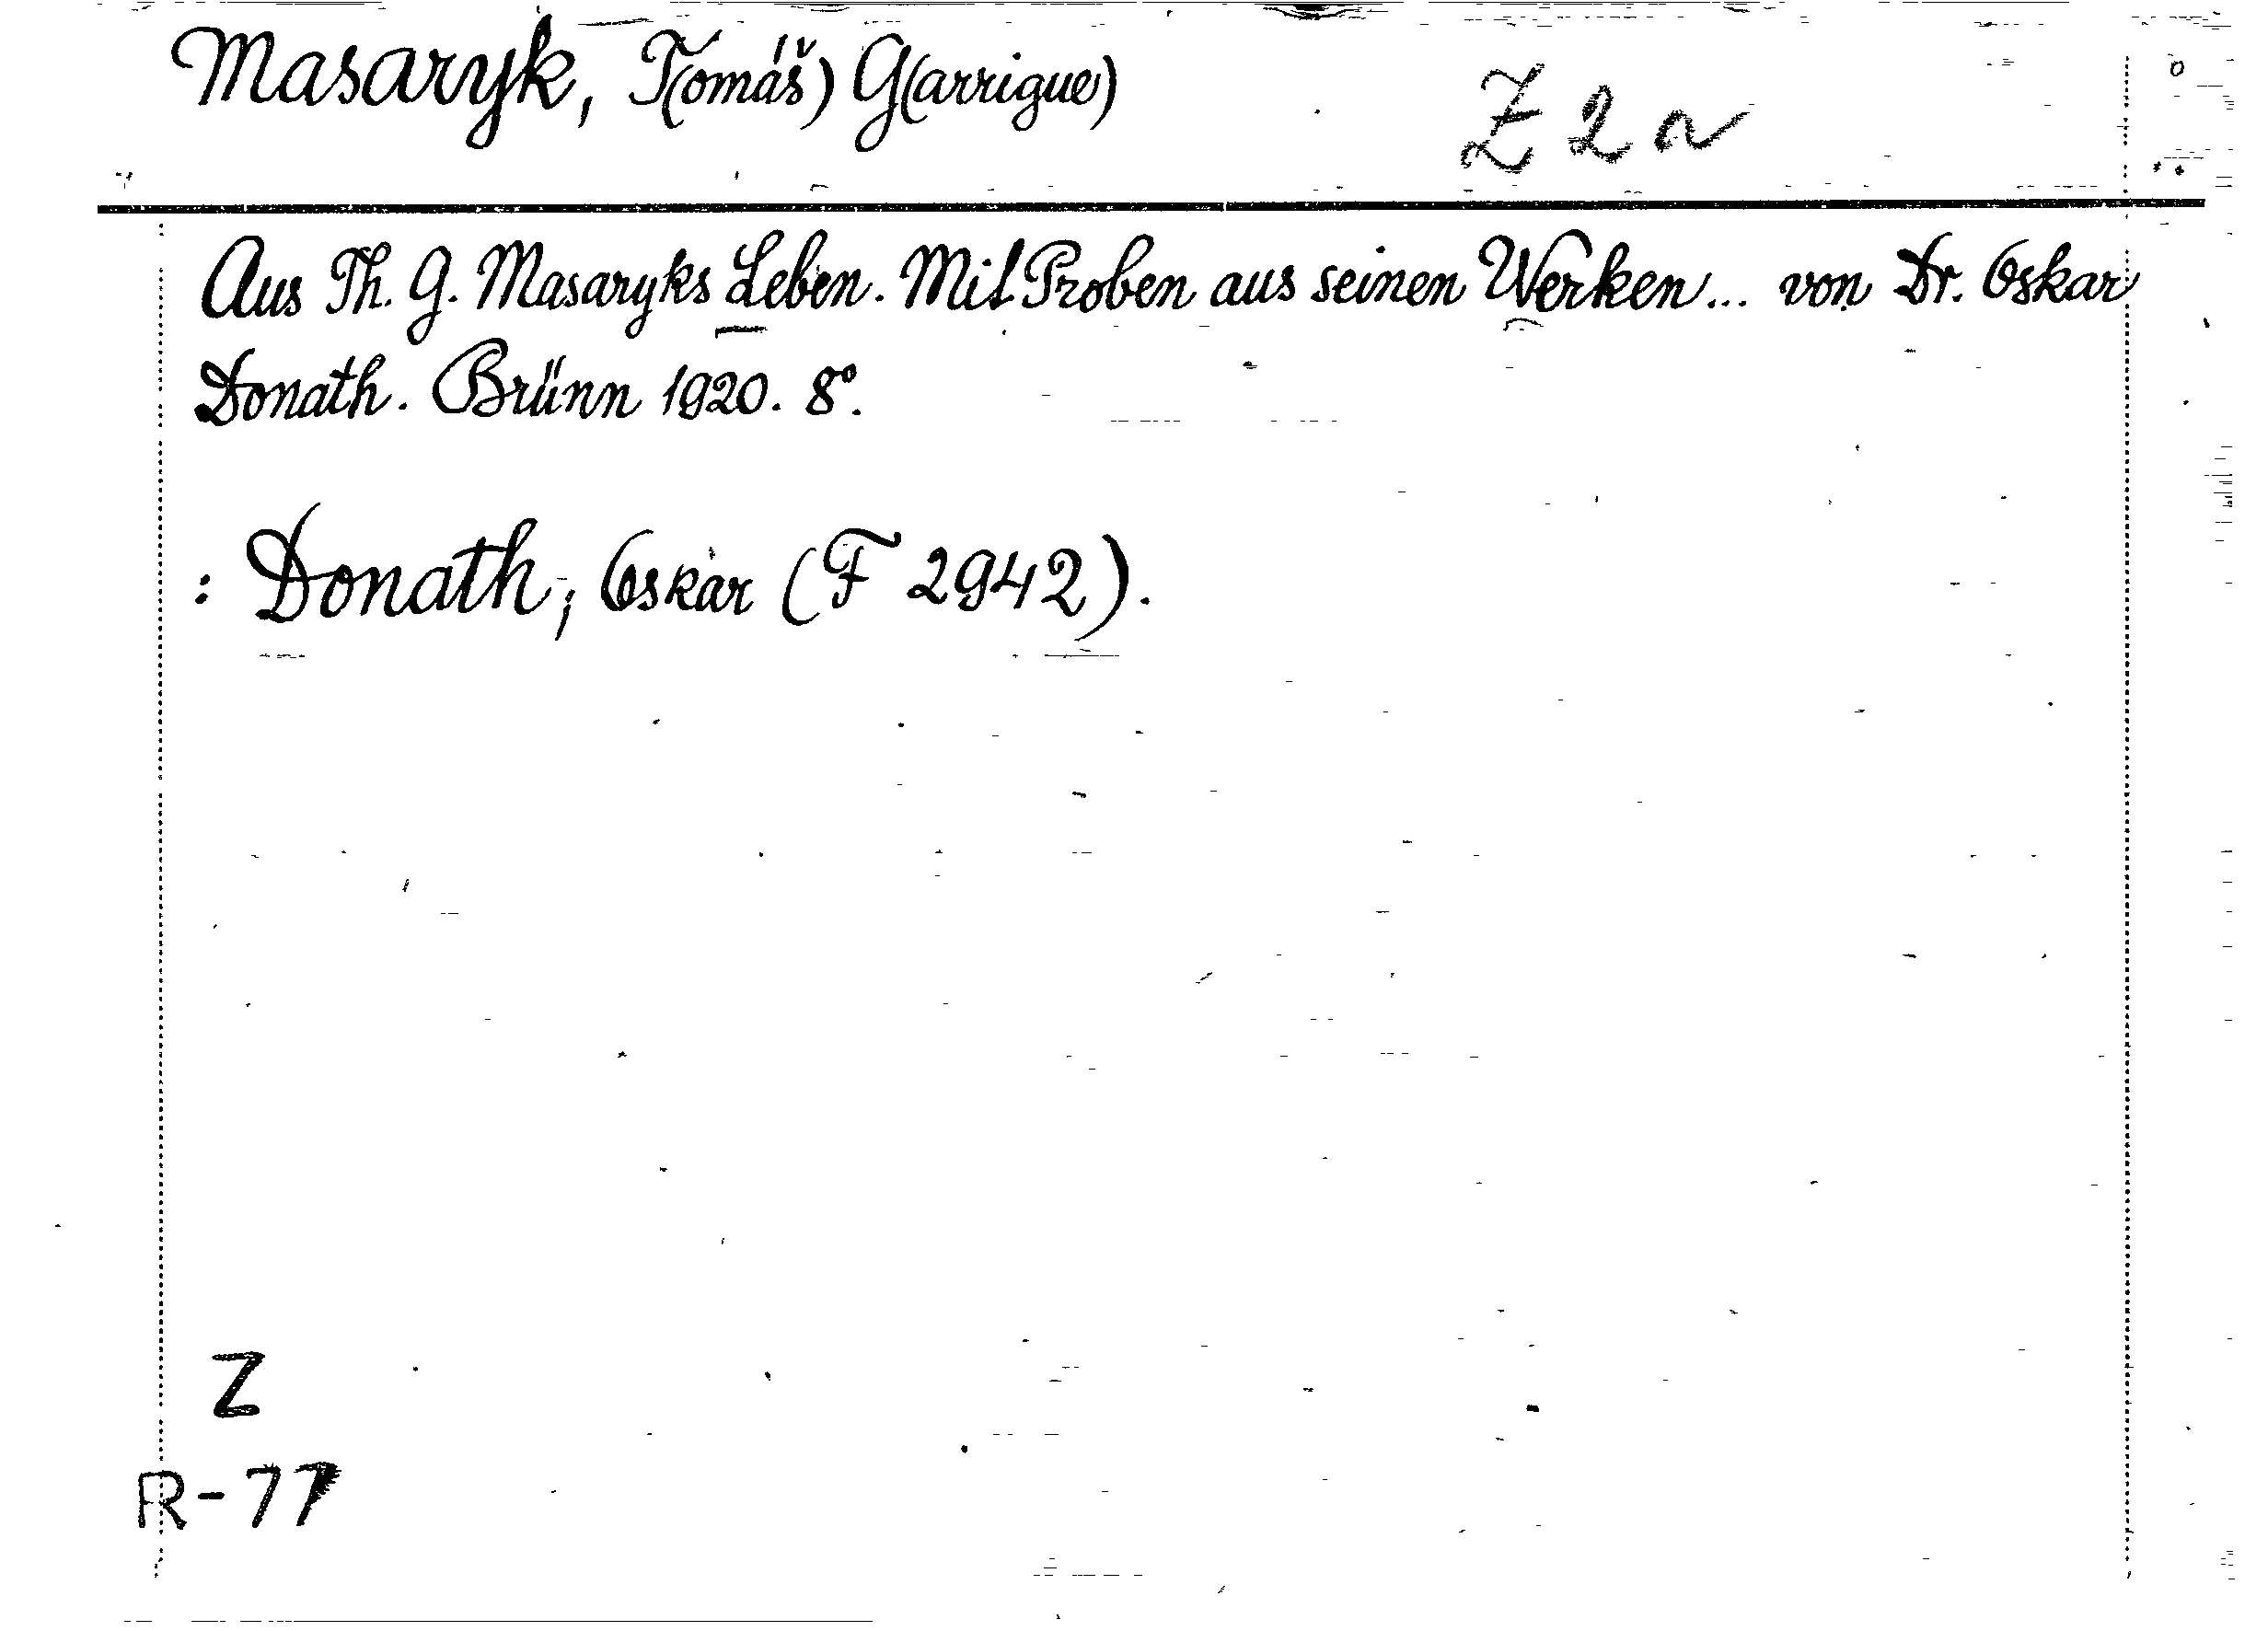 Masaryk, T(omáš) G(arrigue)
Z 2 a
Aus Th. G. Masaryks Leben. Mit Proben aus seinen Werken... von Dr. Oskar
Donath. Brünn 1920. 8°.
: Donath, Oskar (F 2942).
Z
R-77